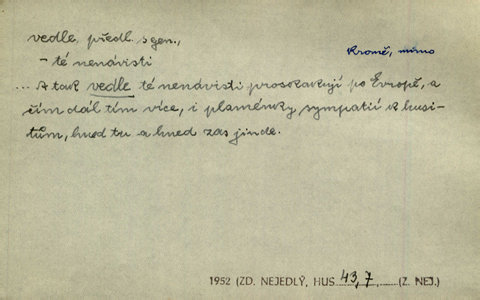 vedle, předl. s gen.,
kromě, mimo
- té nenávisti
... A tak vedle té nenávisti proskakují po Evropě, a
čím dál tím více, i plaménky sympatií k husi-
tům, hned tu a hned zas jinde.
1952 (ZD. NEJEDLÝ, HUS 43,7 (Z. NEJ.)